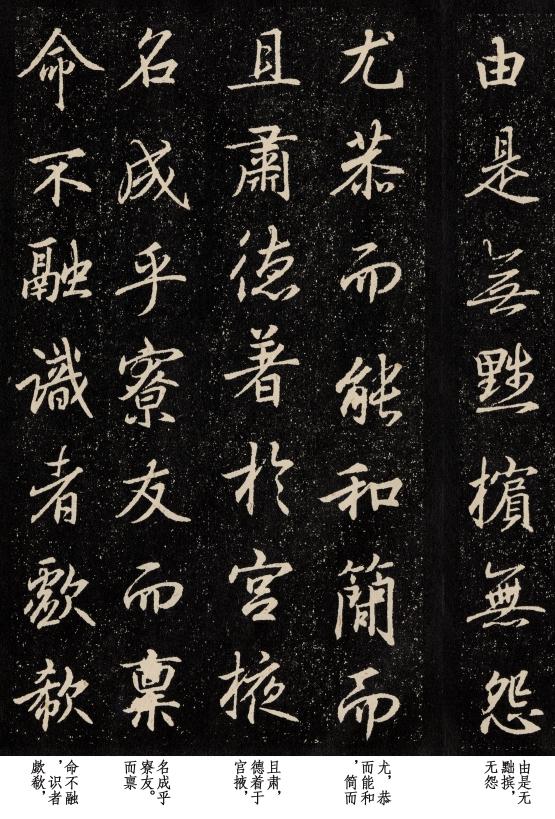 由是無黜擯無怨
尤恭而能和簡而
且肅德著於宮掖
名成乎寮友而稟
命不融識者歔欷
由是无
黜摈，
无怨
尤，恭
而能和
，简而
且肃，
德着于
宫掖，
名成乎
寮友。
而禀
命不融
，识者
歔欷，